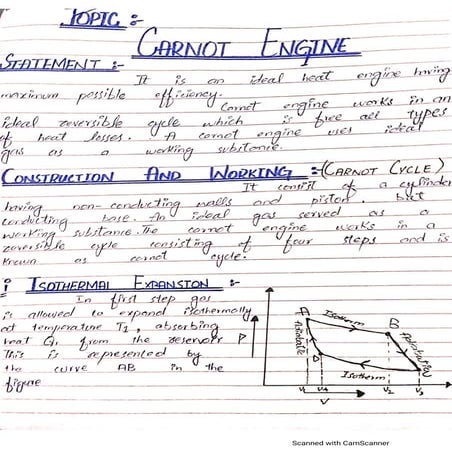 TOPIC :-
CARNOT ENGINE
STATEMENT :-
It is an ideal heat engine having
maximum possible efficiency.
Carnot engine works in an
ideal reversible cycle which is free all types
of heat losses. A carnot engine uses ideal
gas as a working substance.
CONSTRUCTION AND WORKING :-(CARNOT CYCLE)
It consist of a cylinder
having non-conducting walls and piston. but
conducting base. An ideal gas served as a
working substance. The carnot engine works in a
reversible cycle consisting of four steps and is
known as carnot cycle.
i ISOTHERMAL EXPANSION :-
In first step gas
is allowed to expand isothermally
at temperature T1, absorbing
heat Q1 from the reservoir
This is represented by
the curve AB in the
figure
P
A
Isotherm
B
Adiabatic
Adiabatic
D
Isotherm
V1 V4 V2 V3
V
Scanned with CamScanner